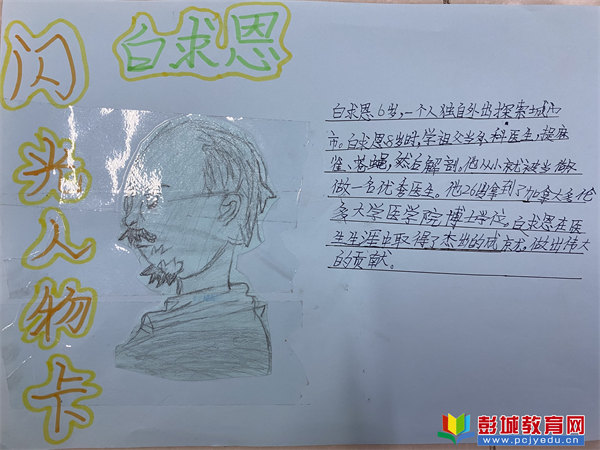 白求恩
闪光人物卡
白求恩6岁,一个人独自外出探索城市
市。白求恩8岁时,学祖父当外科医生,捉麻
雀、苍蝇,然后解剖。他从小就
做一名优秀医生。他26岁拿到了加拿大多伦
多大学医学院博士学位。白求恩在医
生生涯中取得了杰出的成就,做出伟大
的贡献。
彭城教育网
www.pcjyedu.cn